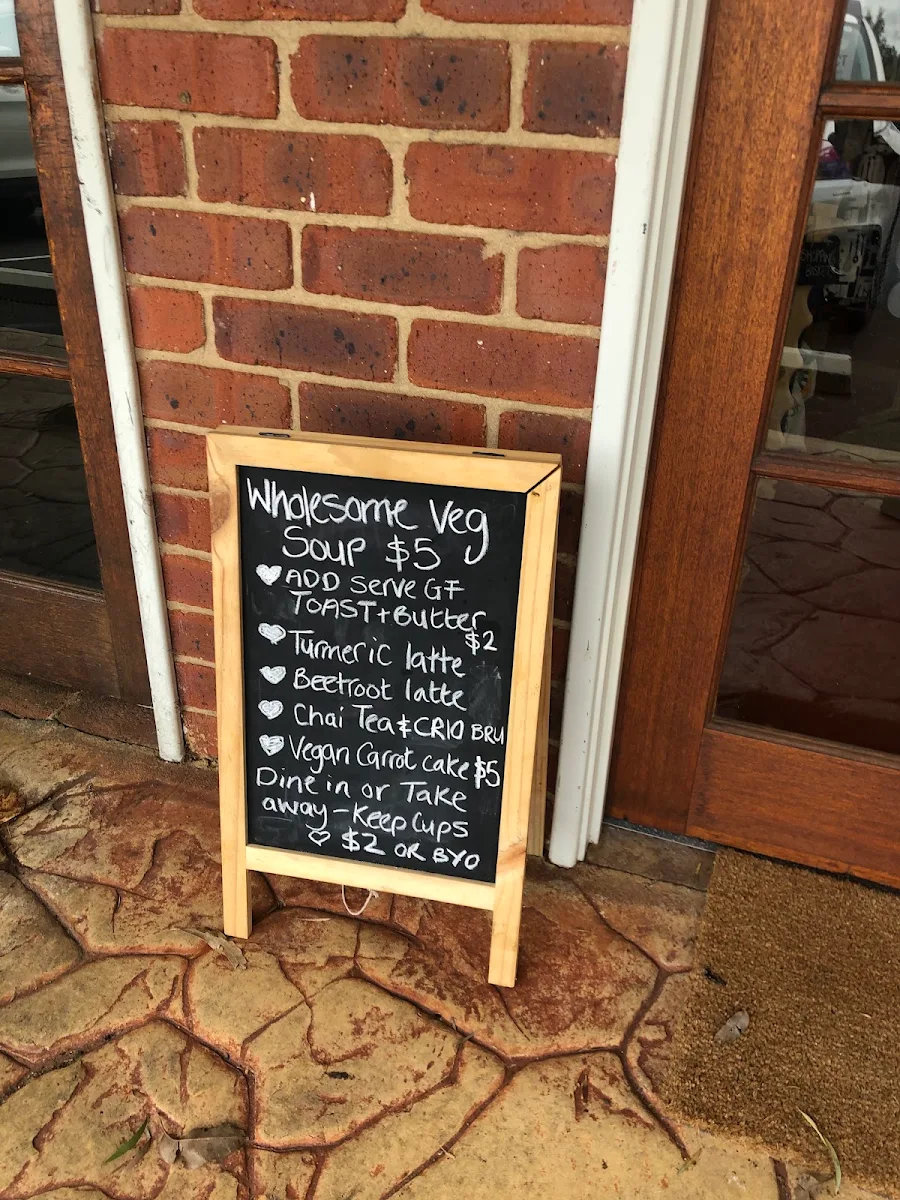 Wholesome Veg
Soup $5
ADD Serve GF
TOAST + Butter
$2
Turmeric latte
Beetroot latte
Chai Tea & CRIO BRU
Vegan Carrot cake $5
Dine in or Take
away - Keep Cups
$2 OR BYO